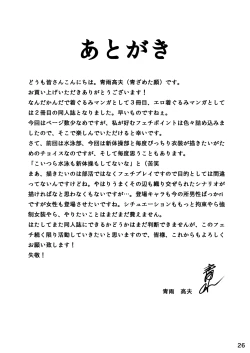 あとがき
どうも皆さんこんにちは。青雨高夫（青ざめた顔）です。
お買い上げいただきありがとうございます！
なんだかんだで着ぐるみマンガとして３冊目、エロ着ぐるみマンガとして
は２冊目の同人誌となりました。早いものですねぇ。
今回はページ数少なめですが、私が好むフェチポイントは色々詰め込みま
したので、そこで楽しんでいただけると幸いです。
さて、前回は水泳部、今回は新体操部と毎度ぴっちり衣装が描きたいがた
めのチョイスなのですが、そして毎度思うこともあります。
「こいつら水泳も新体操もしてないな」と（苦笑
まぁ、描きたいのは部活ではなくフェチプレイですので目的としては間違
ってないんですけどね。やはりうまくその辺も織り交ぜられたシナリオが
描ければなと思わなくもないですが…。登場キャラも今の所男性ばっかり
ですが女性も登場させたいですね。シチュエーションももっと拘束やら強
制女装やら、やりたいことはまだまだ数えません。
はたしてまた同人誌にできるかどうかはまだ判断できませんが、このフェ
チ続く限り活動していきたいと思いますので、皆様、これからもよろしく
お願い致します！
失敬！
青雨　高夫
26